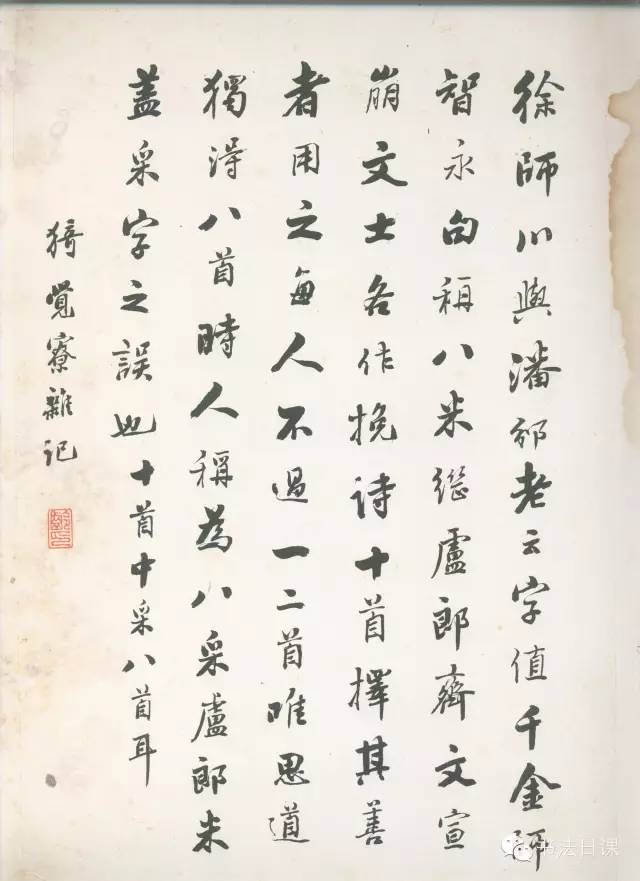 徐師川與潘邠老云字值千金師
智永句稱八米繼盧郎齊文宣
崩文士各作挽詩十首擇其善
者用之每人不過一二首唯思道
獨得八首時人稱為八采盧郎米
蓋采字之誤也十首中采八首耳
猗覺寮雜记
书法日课